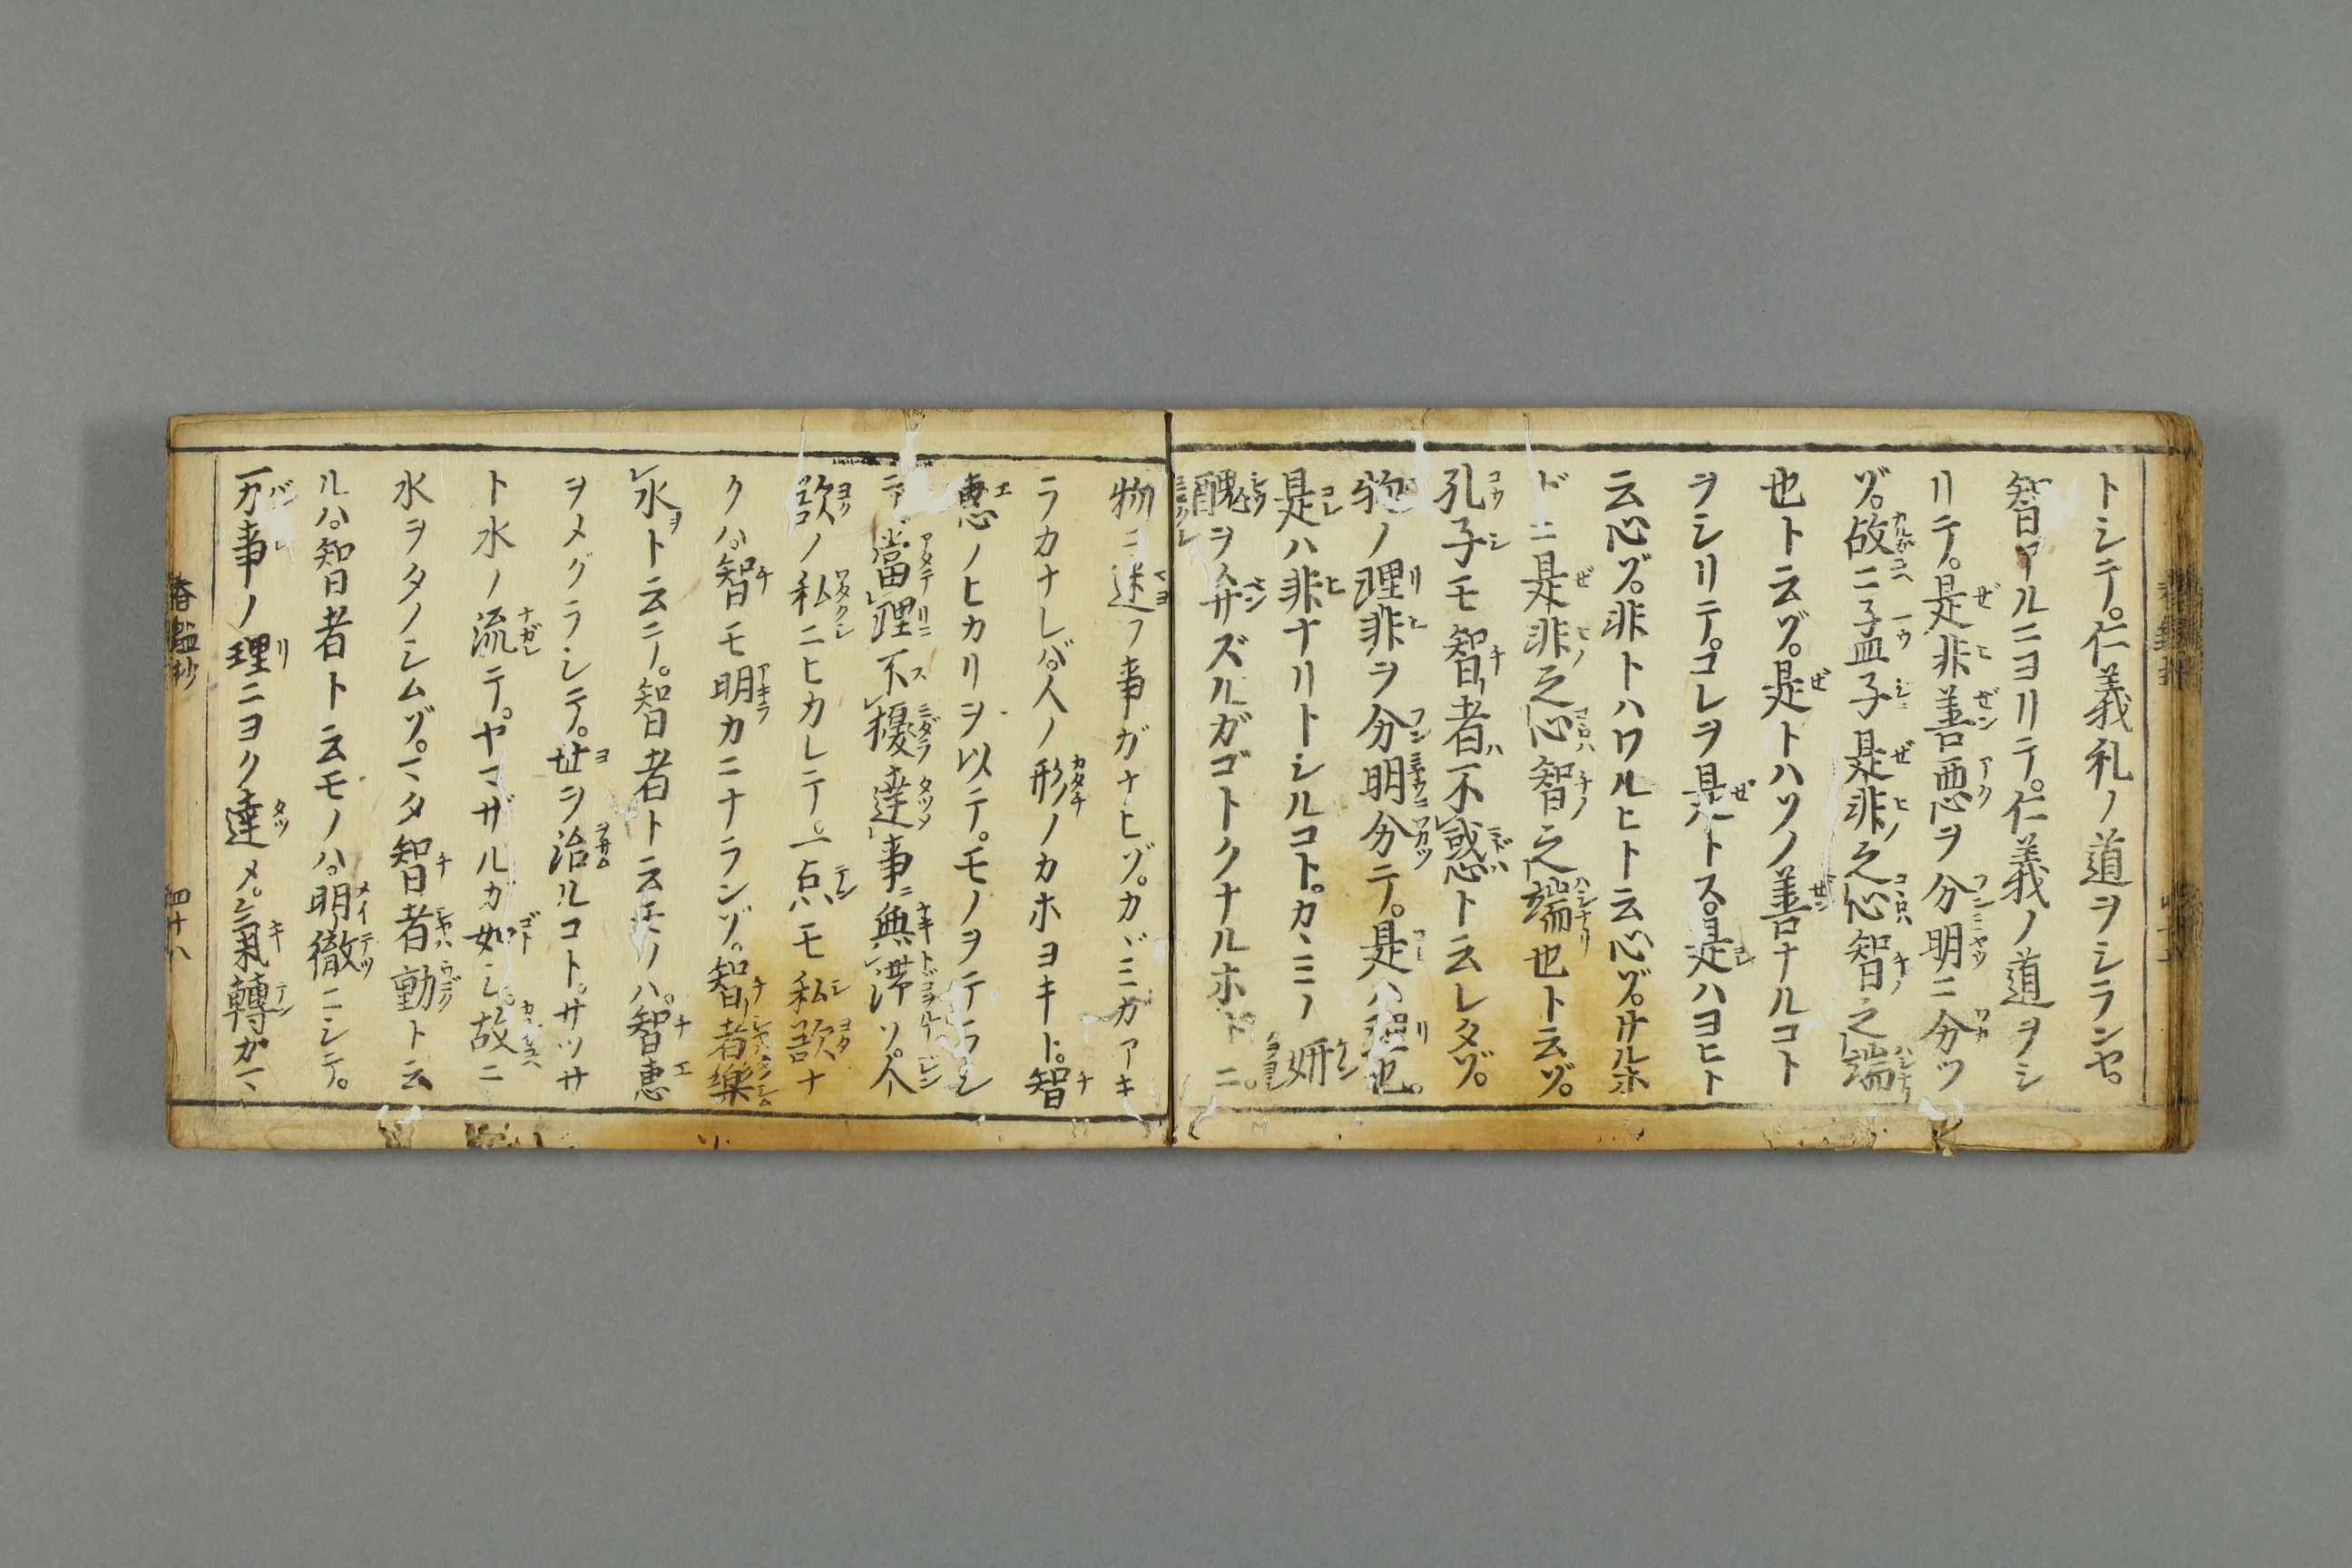 トシテ。仁義礼ノ道ヲシランヤ。
智アルニヨリテ。仁義ノ道ヲシ
リテ。是非善悪ヲ分明ニ分ツ
ゾ。故ニ孟子是非之心智之端
也ト云ゾ。是トハソノ善ナルコト
ヲシリテ。コレヲ是トス。是ハヨヒト
云心ゾ。非トハワルヒト云心ゾ。サルホ
ドニ是非之心智之端也ト云ゾ。
孔子モ智者不惑ト云レタゾ。
物ノ理非ヲ分明分テ。是ハ理也。
是ハ非ナリトシルコト。カヾミノ妍
醜ヲ弁ズルガゴトクナルホドニ。
物ニ迷フ事ガナヒゾ。カヾミガアキ
ラカナレバ。人ノ形ノカホヨキト。智
恵ノヒカリヲ以テ。モノヲテラシ
テ當理不擾達事無滞ソ。人
欲ノ私ニヒカレテ。一点モ私欲ナ
クハ。智モ明カニナランゾ。智者樂
水ト云テ。智者ト云モノハ。智恵
ヲメグラシテ。世ヲ治ルコト。サツサ
ト水ノ流テ。ヤマザルガ如シ。故ニ
水ヲタノシムゾ。マタ智者動ト云
ルハ。智者ト云モノハ。明徹ニシテ。
万事ノ理ニヨク達メ。氣轉ガ
春鑑抄
四十八